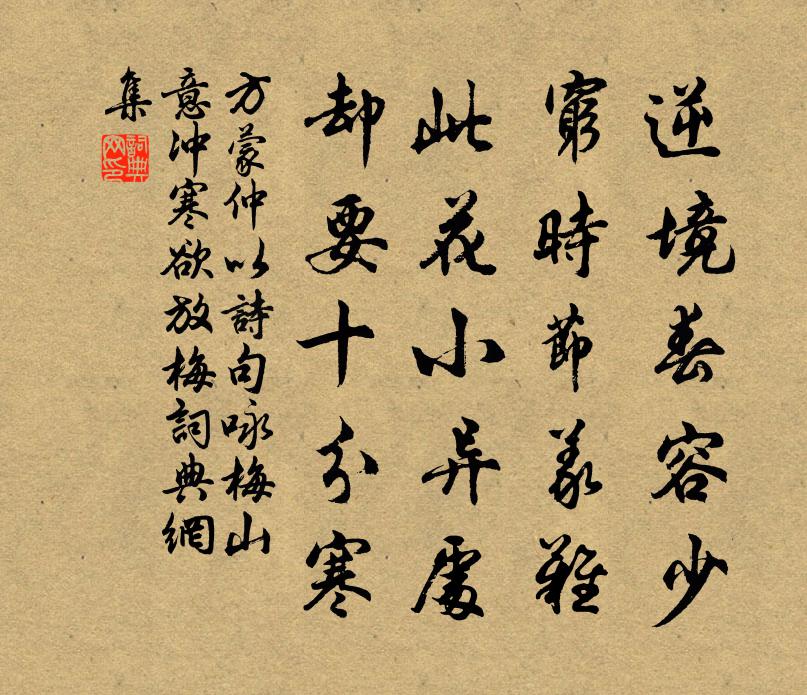 逆境春容少
窮時節義難
此花小异處
却要十分寒
方蒙仲以詩句咏梅山
意冲寒欲放梅詞典網
集
詞典
网印